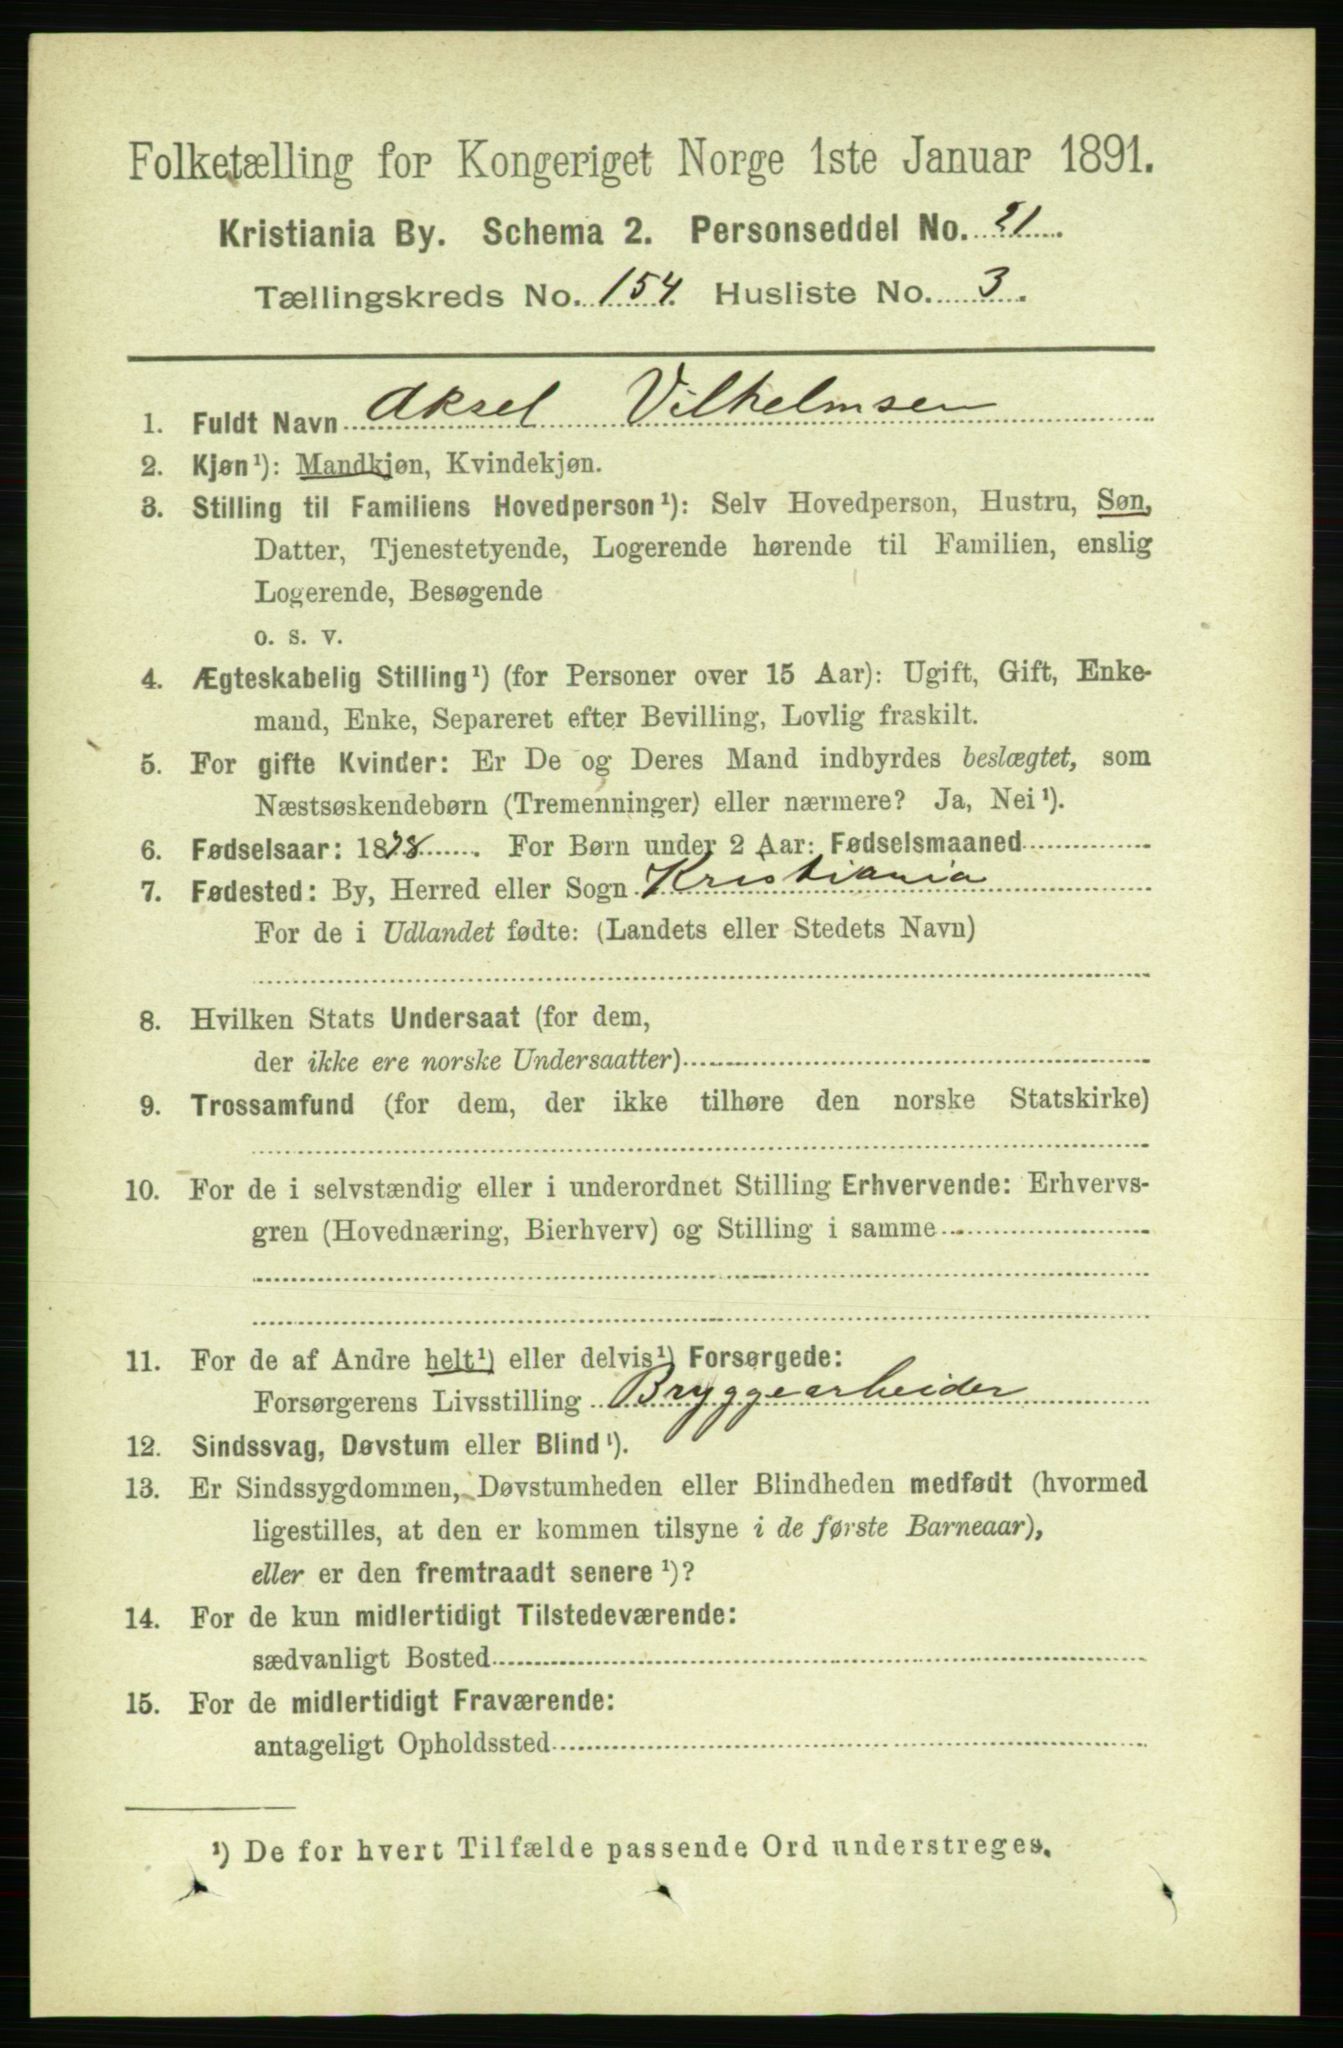 Folketælling for Kongeriget Norge 1ste Januar 1891.
Kristiania By. Schema 2. Personseddel No. 21.
Tællingskreds No. 154. Husliste No. 3.
1. Fuldt Navn Aksel Vilhelmsen
2. Kjøn¹): Mandkjøn, Kvindekjøn.
3. Stilling til Familiens Hovedperson¹): Selv Hovedperson, Hustru, Søn,
Datter, Tjenestetyende, Logerende hørende til Familien, enslig
Logerende, Besøgende
o. s. v.
4. Ægteskabelig Stilling¹) (for Personer over 15 Aar): Ugift, Gift, Enke-
mand, Enke, Separeret efter Bevilling, Lovlig fraskilt.
5. For gifte Kvinder: Er De og Deres Mand indbyrdes beslægtet, som
Næstsøskendebørn (Tremenninger) eller nærmere? Ja, Nei¹).
6. Fødselsaar: 1878. For Børn under 2 Aar: Fødselsmaaned
7. Fødested: By, Herred eller Sogn Kristiania
For de i Udlandet fødte: (Landets eller Stedets Navn)
8. Hvilken Stats Undersaat (for dem,
der ikke ere norske Undersaatter)
9. Trossamfund (for dem, der ikke tilhøre den norske Statskirke)
10. For de i selvstændig eller i underordnet Stilling Erhvervende: Erhvervs-
gren (Hovednæring, Bierhverv) og Stilling i samme
11. For de af Andre helt¹) eller delvis¹) Forsørgede:
Forsørgerens Livsstilling Bryggearbeider
12. Sindssvag, Døvstum eller Blind¹).
13. Er Sindssygdommen, Døvstumheden eller Blindheden medfødt (hvormed
ligestilles, at den er kommen tilsyne i de første Barneaar),
eller er den fremtraadt senere¹)?
14. For de kun midlertidigt Tilstedeværende:
sædvanligt Bosted
15. For de midlertidigt Fraværende:
antageligt Opholdssted
¹) De for hvert Tilfælde passende Ord understreges.